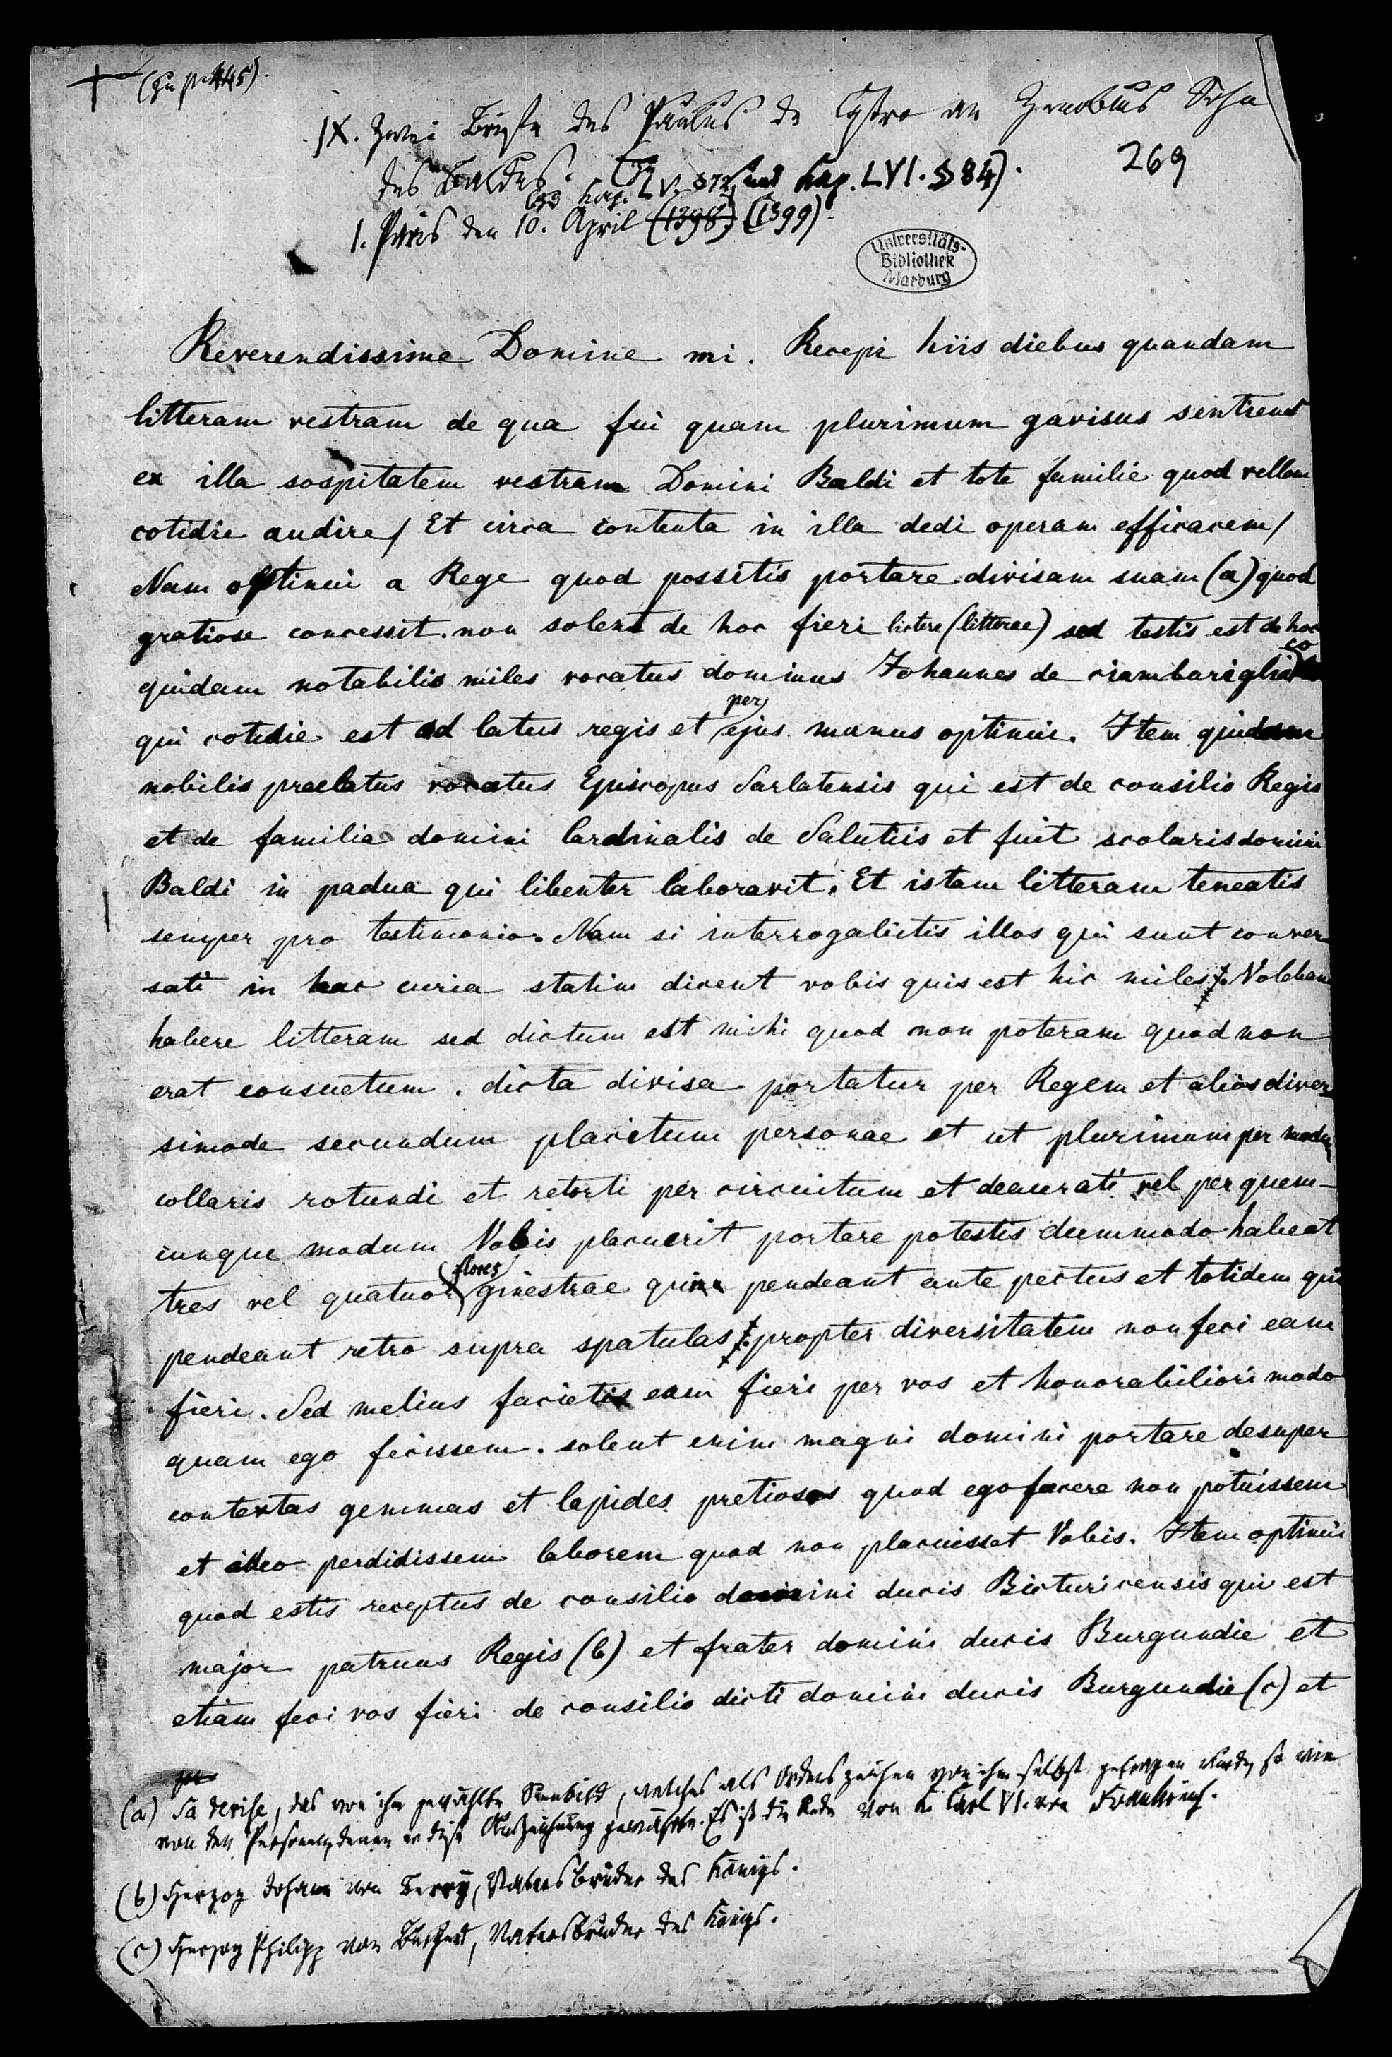 (Zu p. 445).
IX. Zwei Briefe des Paulus de Castro an Zenobius Sohn
269
des Baldus. (Zu Kap. LV. § 72, und Kap. LVI. § 84).
1. Paris den 10. April (1398) (1399).
Universitäts-
Bibliothek
Marburg
Reverendissime Domine mi. Recepi hiis diebus quandam
litteram vestram de qua fui quam plurimum gavisus sentiens
ex illa sospitatem vestram Domini Baldi et tote familie quod vellem
cotidie audire / Et circa contenta in illa dedi operam efficacem /
Nam optinui a Rege quod possitis portare divisam suam (a) quod
gratiose concessit. non solent de hoc fieri lictere (litterae) sed testis est de hoc
quidam notabilis miles vocatus dominus Johannes de ciambarigliaco
qui cotidie est ad latus regis et per ejus manus optinui. Item quidam
nobilis praelatus vocatus Episcopus Sarlatensis qui est de consilio Regis
et de familia domini Cardinalis de Salutiis et fuit scolaris domini
Baldi in padua qui libenter laboravit. Et istam litteram teneatis
semper pro testimonio. Nam si interrogabitis illos qui sunt conver
sati in hac curia statim dicent vobis quis est hic miles. Volebam
habere litteram sed dictum est michi quod non poteram quod non
erat consuetum. dicta divisa portatur per Regem et alios diver
simode secundum placitum personae et ut plurimum per modum
collaris rotundi et retorti per circuitum et deaurati vel per quem-
cunque modum Vobis placuerit portare potestis dummodo habeat
tres vel quatuor flores ginestrae qui pendeant ante pectus et totidem qui
pendeant retro supra spatulas. propter diversitatem non feci eam
fieri. Sed melius facietis eam fieri per vos et honorabiliori modo
quam ego fecissem. solent enim magni domini portare desuper
contextas gemmas et lapides pretiosos quod ego facere non potuissem
et ideo perdidissem laborem quod non placuisset Vobis. Item optinui
quod estis receptus de consilio domini ducis Bicturicensis qui est
major patruus Regis (b) et frater domini ducis Burgundie et
etiam feci vos fieri de consilio dicti domini ducis Burgundie (c) et
(a) Sa devise, das von ihm gewählte Sinnbild, welches als Ordenszeichen von ihm selbst getragen wurde, so wie
von den Personen, denen er diese Auszeichnung gewährte. Es ist die Rede von K. Carl VI. von Frankreich.
(b) Herzog Johann von Berry, Vatersbruder des Königs.
(c) Herzog Philipp von Burgund, Vatersbruder des Königs.